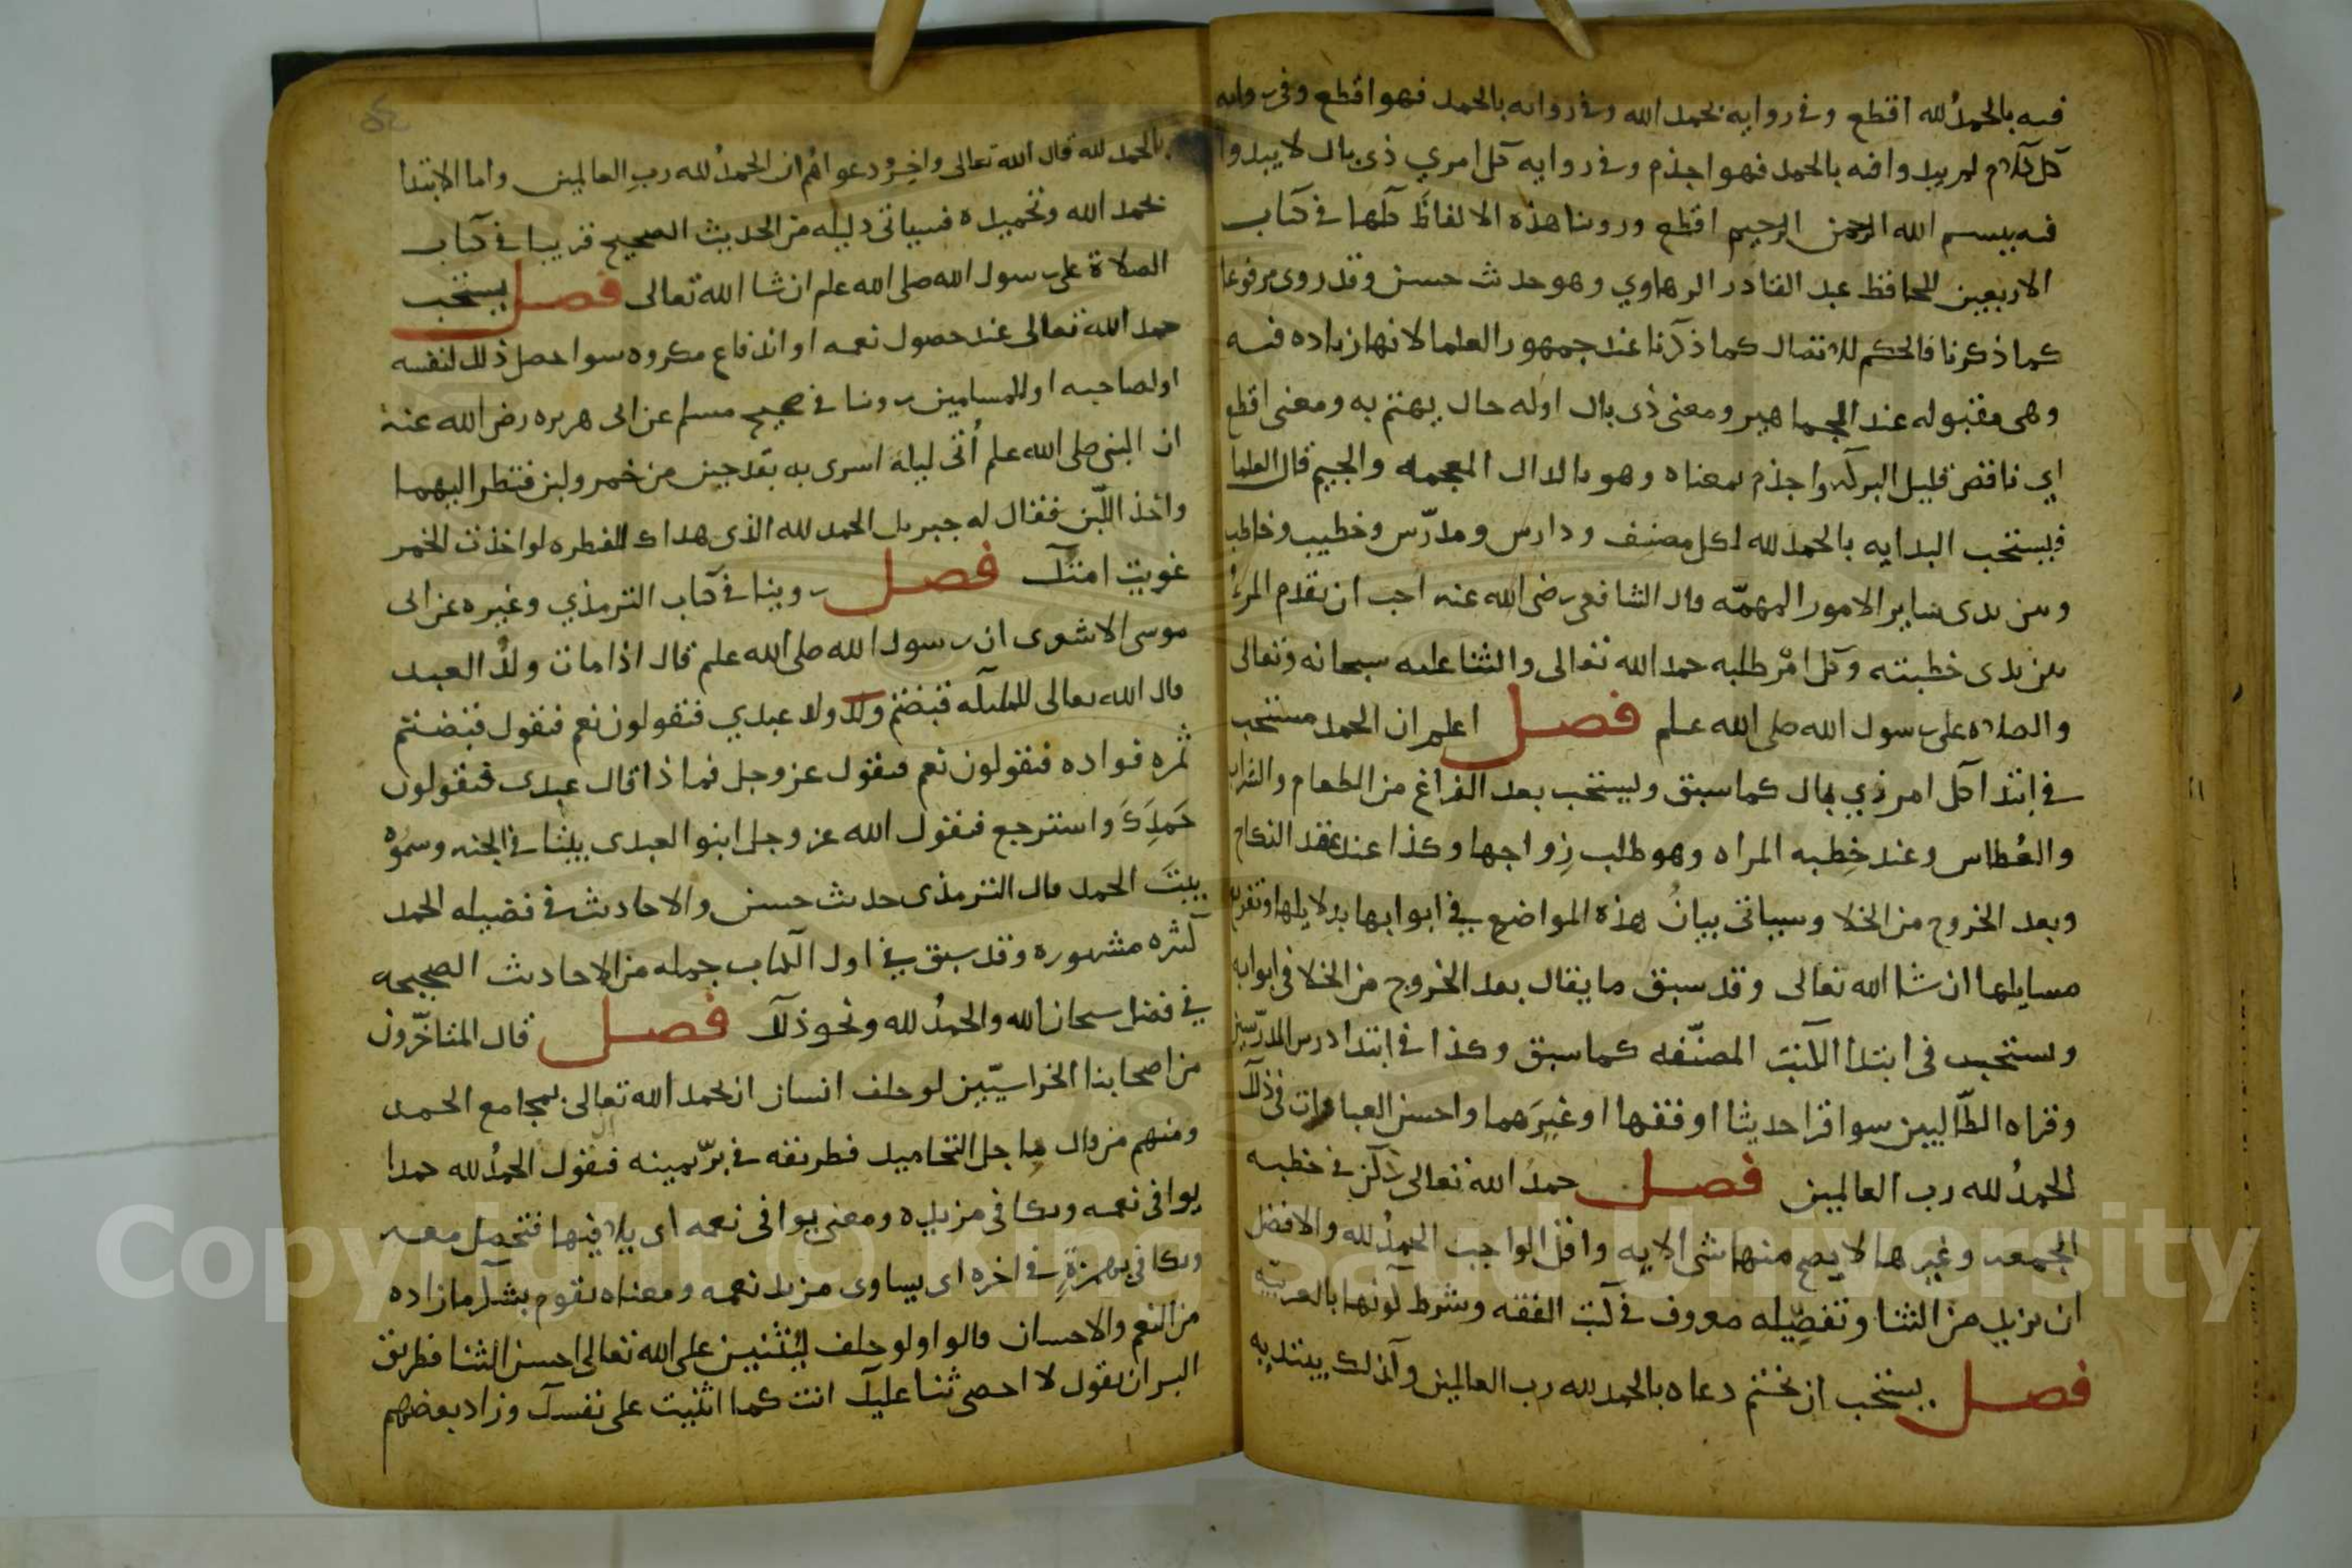 فيه بالحمدُ لله اقطع وفي رواية بحمد الله وفي رواية بالحمد فهو اقطع وفي رواية
كل كلام لم يبدوا فيه بالحمد فهو اجذم وفي رواية كل امري ذي بال لا يبدوا
فيه ببسم الله الرحمن الرحيم اقطع وروينا هذه الالفاظ كلها في كتاب
الاربعين للحافظ عبد القادر الرهاوي وهو حديث حسن وقد روى مرفوعا
كما ذكرنا فالحكم للاتصال كما ذكرنا عند جمهور العلما لانها زيادة فيه
وهي مقبولة عند الجماهير ومعنى ذي بال اوله حال يهتم به ومعنى اقطع
اي ناقص قليل البركة واجذم بمعناه وهو بالدال المعجمة والجيم قال العلما
فيستحب البداية بالحمد لله لكل مصنف ودارس ومدرّس وخطيب وخاطب
وبين يدى ساير الامور المهمّة قال الشافعي رضي الله عنه احب ان يقدم المرءُ
بين يدى خطبته وكل امْر طلبه حمد الله تعالى والثنا عليه سبحانه وتعالى
والصلاة على رسول الله صلى الله علم فصل اعلم ان الحمد مستحب
في ابتدا كل امر ذي بال كما سبق ويستحب بعد الفراغ من الطعام والشراب
والعُطاس وعند خِطبة المراة وهو طلب زِواجها وكذا عند عقد النكاح
وبعد الخروج من الخلا وسياتي بيانُ هذه المواضع في ابوابها بدلايلها وتفريع
مسايلها ان شا الله تعالى وقد سبق ما يقال بعد الخروج من الخلا في ابوابه
ويستحب في ابتدا الكتب المصنّفة كما سبق وكذا في ابتدا درس المدرّسين
وقراة الطّالبين سوا قرا حديثا او فقها او غيرَهما واحسن العبارات في ذلك
الحمدُ لله رب العالمين فصل حمدُ الله تعالى ركن في خطبة
الجمعة وغيرها لا يصح منها شى الا به واقل الواجب الحمدُ لله والافضل
ان يزيد من الثنا وتفصيله معروف في كتب الفقه وشرط كونها بالعربيّة
فصل يستحب ان يختم دعاه بالحمد لله رب العالمين وكذلك يبتديه
بالحمد لله قال الله تعالى واخِرُ دعواهُم ان الحمدُ لله ربِ العالمين واما الابتدا
بحمد الله وتحميده فسياتي دليله من الحديث الصحيح قريبا في كتاب
الصلاة على رسول الله صلى الله علم ان شا الله تعالى فصل يستحب
حمد الله تعالى عند حصول نعمه او اندفاع مكروه سوا حصل ذلك لنفسه
او لصاحبه او للمسلمين روينا في صحيح مسلم عن ابى هريره رضي الله عنه
ان النبي صلى الله علم أُتي ليلة اسرى به بقدحين من خمر ولبن فنظر اليهما
واخذ اللّبن فقال له جبريل الحمد لله الذي هداك للفطره لو اخذت الخمر
غويت امتك فصل روينا في كتاب الترمذي وغيره عن ابى
موسى الاشعرى ان رسول الله صلى الله علم قال اذا مات ولدُ العبد
قال الله تعالى للملايكه قبضتم ولد عبدي فيقولون نعم فيقول قبضتم
ثمره فواده فيقولون نعم فيقول عز وجل فما ذا قال عبدى فيقولون
حَمِدَكَ واسترجع فيقول الله عز وجل ابنوا لعبدى بيتا في الجنه وسمّوه
بيتَ الحمد قال الترمذى حديث حسن والاحاديث في فضيله الحمد
كثيره مشهوره وقد سبق في اول الكتاب جمله من الاحاديث الصحيحه
في فضل سبحان الله والحمدُ لله ونحو ذلك فصل قال المتاخّرون
من اصحابنا الخراسيّين لو حلف انسان ان يحمد الله تعالى بمجامع الحمد
ومنهم من قال باجل التحاميد فطريقه في برّ يمينه فيقول الحمدُ لله حمدا
يوافي نعمه ويكافي مزيده ومعنى يوافى نعمه اى يلاقيها فتحصل معه
ويكافي بهمزةٍ في اخره اى يساوى مزيد نعمه ومعناه يقوم بشكر ما زاده
من النعم والاحسان قالوا ولو حلف ليُثنين على الله تعالى احسن الثنا فطريق
البر ان يقول لا احصى ثنا عليك انت كما اثنيت على نفسك وزاد بعضهم
Copyright © King Saud University